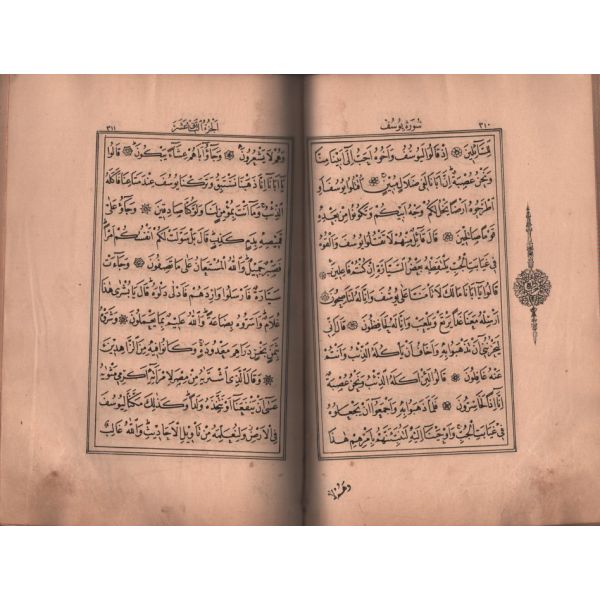 ٣١٠
سُورَةُ يُوسُفَ
لِلسَّائِلِينَ اِذْ قَالُوا لَيُوسُفُ وَاَخُوهُ اَحَبُّ اِلٰى اَبِينَا مِنَّا
وَنَحْنُ عُصْبَةٌ اِنَّ اَبَانَا لَفِى ضَلَالٍ مُبِينٍ اُقْتُلُوا يُوسُفَ اَوِ
اطْرَحُوهُ اَرْضًا يَخْلُ لَكُمْ وَجْهُ اَبِيكُمْ وَتَكُونُوا مِنْ بَعْدِهِ
قَوْمًا صَالِحِينَ قَالَ قَائِلٌ مِنْهُمْ لَا تَقْتُلُوا يُوسُفَ وَاَلْقُوهُ
فِى غَيَابَتِ الْجُبِّ يَلْتَقِطْهُ بَعْضُ السَّيَّارَةِ اِنْ كُنْتُمْ فَاعِلِينَ
قَالُوا يَا اَبَانَا مَا لَكَ لَا تَأْمَنَّا عَلٰى يُوسُفَ وَاِنَّا لَهُ لَنَاصِحُونَ
اَرْسِلْهُ مَعَنَا غَدًا يَرْتَعْ وَيَلْعَبْ وَاِنَّا لَهُ لَحَافِظُونَ قَالَ اِنِّى
لَيَحْزُنُنِى اَنْ تَذْهَبُوا بِهِ وَاَخَافُ اَنْ يَأْكُلَهُ الذِّئْبُ وَاَنْتُمْ
عَنْهُ غَافِلُونَ قَالُوا لَئِنْ اَكَلَهُ الذِّئْبُ وَنَحْنُ عُصْبَةٌ
اِنَّا اِذًا لَخَاسِرُونَ فَلَمَّا ذَهَبُوا بِهِ وَاَجْمَعُوا اَنْ يَجْعَلُوهُ
فِى غَيَابَتِ الْجُبِّ وَاَوْحَيْنَا اِلَيْهِ لَتُنَبِّئَنَّهُمْ بِاَمْرِهِمْ هٰذَا
وَهُمْ لَا
الجزء الثاني عشر
٣١١
وَهُمْ لَا يَشْعُرُونَ وَجَاؤُ اَبَاهُمْ عِشَاءً يَبْكُونَ قَالُوا
يَا اَبَانَا اِنَّا ذَهَبْنَا نَسْتَبِقُ وَتَرَكْنَا يُوسُفَ عِنْدَ مَتَاعِنَا فَاَكَلَهُ
الذِّئْبُ وَمَا اَنْتَ بِمُؤْمِنٍ لَنَا وَلَوْ كُنَّا صَادِقِينَ وَجَاؤُ عَلٰى
قَمِيصِهِ بِدَمٍ كَذِبٍ قَالَ بَلْ سَوَّلَتْ لَكُمْ اَنْفُسُكُمْ اَمْرًا
فَصَبْرٌ جَمِيلٌ وَاللّٰهُ الْمُسْتَعَانُ عَلٰى مَا تَصِفُونَ وَجَاءَتْ
سَيَّارَةٌ فَاَرْسَلُوا وَارِدَهُمْ فَاَدْلٰى دَلْوَهُ قَالَ يَا بُشْرٰى هٰذَا
غُلَامٌ وَاَسَرُّوهُ بِضَاعَةً وَاللّٰهُ عَلِيمٌ بِمَا يَعْمَلُونَ وَشَرَوْهُ
بِثَمَنٍ بَخْسٍ دَرَاهِمَ مَعْدُودَةٍ وَكَانُوا فِيهِ مِنَ الزَّاهِدِينَ
وَقَالَ الَّذِى اشْتَرٰيهُ مِنْ مِصْرَ لِامْرَاَتِهِ اَكْرِمِى مَثْوٰيهُ
عَسٰى اَنْ يَنْفَعَنَا اَوْ نَتَّخِذَهُ وَلَدًا وَكَذٰلِكَ مَكَّنَّا لِيُوسُفَ
فِى الْاَرْضِ وَلِنُعَلِّمَهُ مِنْ تَأْوِيلِ الْاَحَادِيثِ وَاللّٰهُ غَالِبٌ